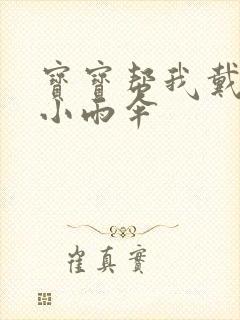 寶寶幫我戴
小雨伞
崔真實